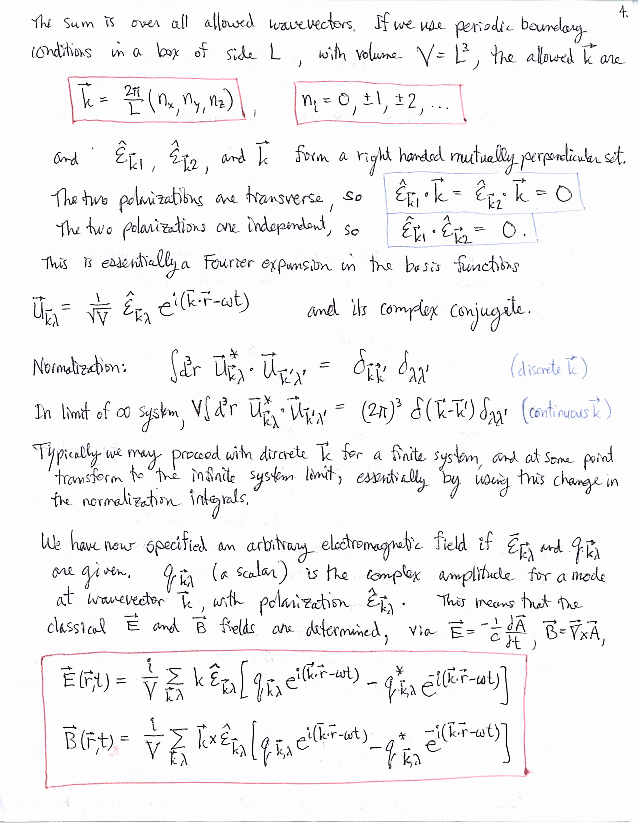 4.
The sum is over all allowed wavevectors. If we use periodic boundary
conditions in a box of side L, with volume V = L³, the allowed k⃗ are
k⃗ = 2π/L (nₓ, n_y, n_z), nᵢ = 0, ±1, ±2, ...
and ε̂_k⃗1, ε̂_k⃗2, and k⃗ form a right handed mutually perpendicular set.
The two polarizations are transverse, so ε̂_k⃗1 · k⃗ = ε̂_k⃗2 · k⃗ = 0
The two polarizations are independent, so ε̂_k⃗1 · ε̂_k⃗2 = 0.
This is essentially a Fourier expansion in the basis functions
u⃗_k⃗λ = 1/√V ε̂_k⃗λ e^{i(k⃗·r⃗-ωt)} and its complex conjugate.
Normalization: ∫d³r u⃗*_k⃗λ · u⃗_k⃗'λ' = δ_k⃗k⃗' δ_λλ' (discrete k⃗)
In limit of ∞ system, V∫d³r u⃗*_k⃗λ · u⃗_k⃗'λ' = (2π)³ δ(k⃗-k⃗') δ_λλ' (continuous k⃗)
Typically we may proceed with discrete k⃗ for a finite system, and at some point
transform to the infinite system limit, essentially by using this change in
the normalization integrals.
We have now specified an arbitrary electromagnetic field if ε̂_k⃗λ and q_k⃗λ
are given. q_k⃗λ (a scalar) is the complex amplitude for a mode
at wavevector k⃗, with polarization ε̂_k⃗λ. This means that the
classical E⃗ and B⃗ fields are determined, via E⃗ = -1/c ∂A⃗/∂t, B⃗ = ∇⃗×A⃗,
E⃗(r⃗,t) = i/V Σ_k⃗λ k ε̂_k⃗λ [q_k⃗,λ e^{i(k⃗·r⃗-ωt)} - q*_k⃗,λ e^{-i(k⃗·r⃗-ωt)}]
B⃗(r⃗,t) = i/V Σ_k⃗λ k⃗×ε̂_k⃗λ [q_k⃗,λ e^{i(k⃗·r⃗-ωt)} - q*_k⃗,λ e^{-i(k⃗·r⃗-ωt)}]